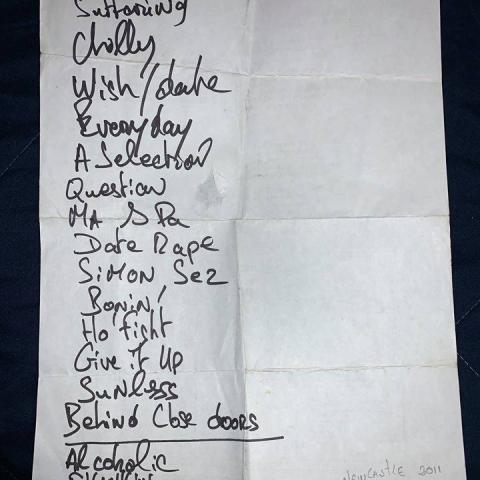 Suffering
Cholly
Wish/date
Everyday
A Selection
Question
MA & PA
Date Rape
SiMON Sez
Bonin'
Ho fight
Give it Up
SuNless
BehiND Close dooRS
Alcoholic
NEWCASTLE 2011